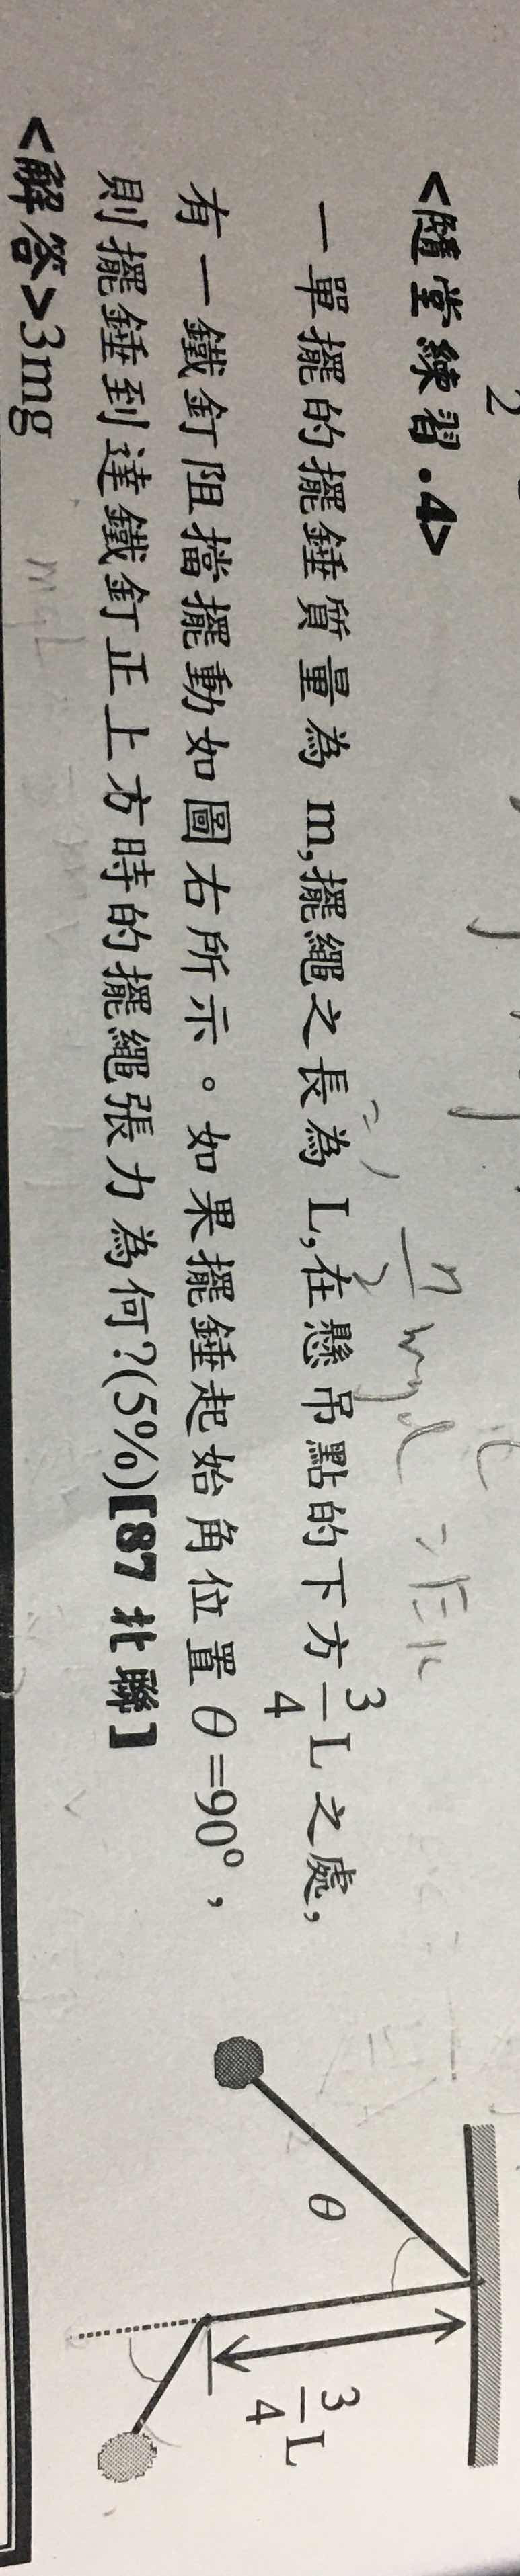 2
<隨堂練習.4>
一單擺的擺錘質量為 m,擺繩之長為 L,在懸吊點的下方 3/4 L 之處,
有一鐵釘阻擋擺動如圖右所示。如果擺錘起始角位置 θ=90°,
則擺錘到達鐵釘正上方時的擺繩張力為何?(5%)【87 北聯】
<解答>3mg
θ
3/4 L
mgL